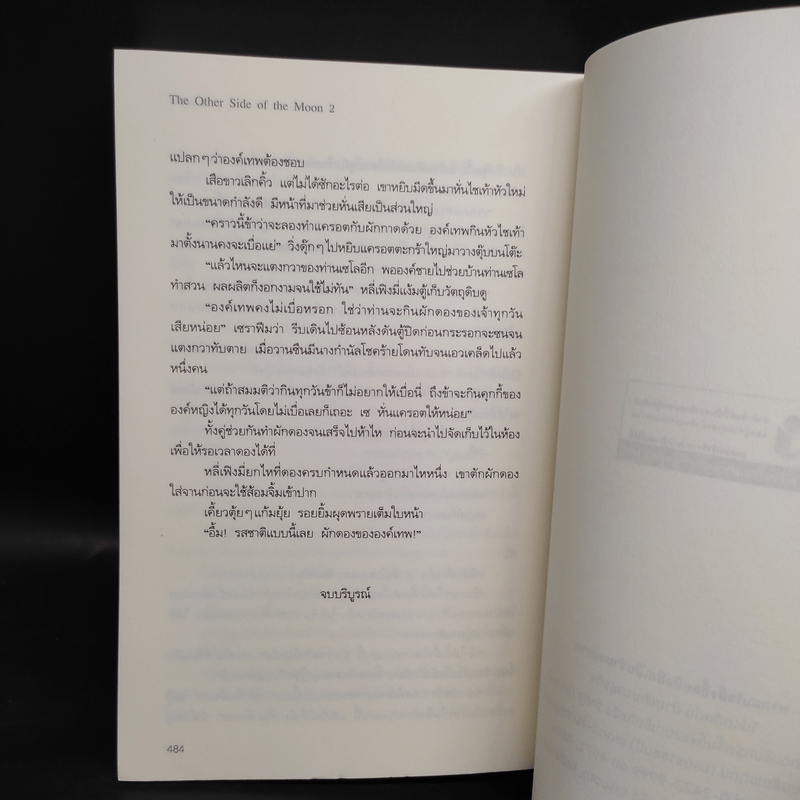 The Other Side of the Moon 2
แปลกๆว่าองค์เทพต้องชอบ
เสือขาวเลิกคิ้ว แต่ไม่ได้ซักอะไรต่อ เขาหยิบมีดขึ้นมาหั่นไชเท้าหัวใหม่
ให้เป็นขนาดกำลังดี มีหน้าที่มาช่วยหั่นเสียเป็นส่วนใหญ่
“คราวนี้ข้าว่าจะลองทำแครอตกับผักกาดด้วย องค์เทพกินหัวไชเท้า
มาตั้งนานคงจะเบื่อแย่” วิ่งตุ๊กๆไปหยิบแครอตตะกร้าใหญ่มาวางตุ๊บบนโต๊ะ
“แล้วไหนจะแตงกวาของท่านเซโลอีก พอองค์ชายไปช่วยบ้านท่านเซโล
ทำสวน ผลผลิตก็งอกงามจนใช้ไม่ทัน” หลี่เฟิงมี่แง้มตู้เก็บวัตถุดิบดู
“องค์เทพคงไม่เบื่อหรอก ใช่ว่าท่านจะกินผักดองของเจ้าทุกวัน
เสียหน่อย” เซราฟีมว่า รีบเดินไปซ้อนหลังดันตู้ปิดก่อนกระรอกจะซนจน
แตงกวาทับตาย เมื่อวานซืนมีนางกำนัลโชคร้ายโดนทับจนเอวเคล็ดไปแล้ว
หนึ่งคน
“แต่ถ้าสมมติว่ากินทุกวันข้าก็ไม่อยากให้เบื่อนี่ ถึงข้าจะกินคุกกี้ของ
องค์หญิงได้ทุกวันโดยไม่เบื่อเลยก็เถอะ เซ หั่นแครอตให้หน่อย”
ทั้งคู่ช่วยกันทำผักดองจนเสร็จไปห้าไห ก่อนจะนำไปจัดเก็บไว้ในห้อง
เพื่อให้รอเวลาดองได้ที่
หลี่เฟิงมี่ยกไหที่ดองครบกำหนดแล้วออกมาไหหนึ่ง เขาตักผักดอง
ใส่จานก่อนจะใช้ส้อมจิ้มเข้าปาก
เคี้ยวตุ้ยๆแก้มยุ้ย รอยยิ้มผุดพรายเต็มใบหน้า
“อื้ม! รสชาติแบบนี้เลย ผักดองขององค์เทพ!”
จบบริบูรณ์
484